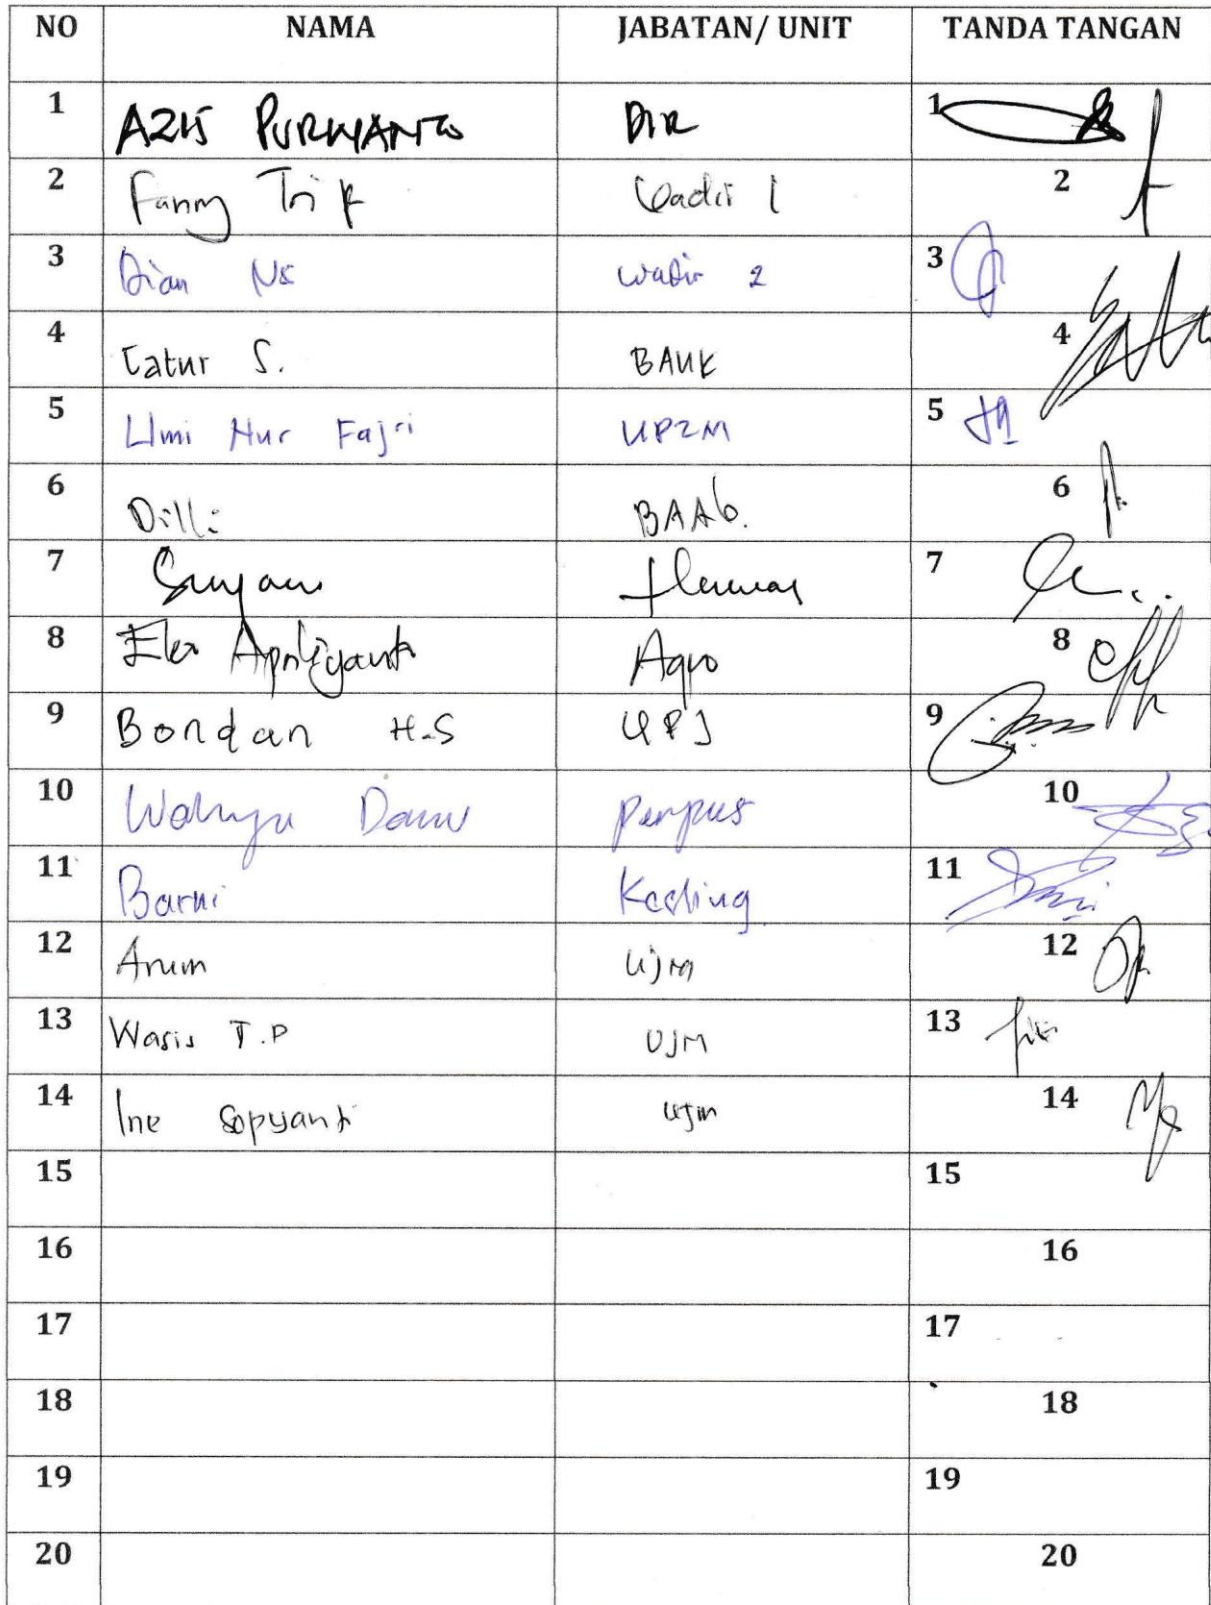 NO NAMA JABATAN/ UNIT TANDA TANGAN
1 AZIS PURWANTO DIR 1
2 Fanny Tri K Wadir 1 2
3 Dian NS Wadir 2 3
4 Catur S. BAUK 4
5 Umi Nur Fajri UP2M 5
6 Dilli BAAK. 6
7 7
8 Eka Apriliyanti Agro 8
9 Bondan H.S UPJ 9
10 Wahyu Perpus 10
11 Barni Kesling 11
12 Arum UJM 12
13 Wasis T.P UJM 13
14 Ine Sopyanti UJM 14
15 15
16 16
17 17
18 18
19 19
20 20